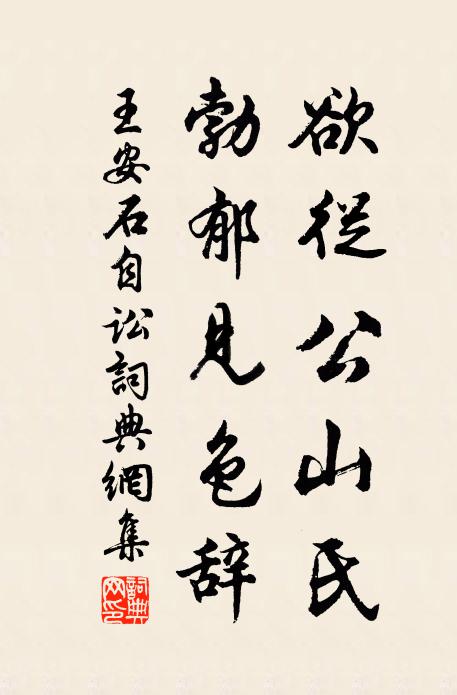 欲從公山氏
勃郁見色辞
王安石自訟詞典網集
詞典網印